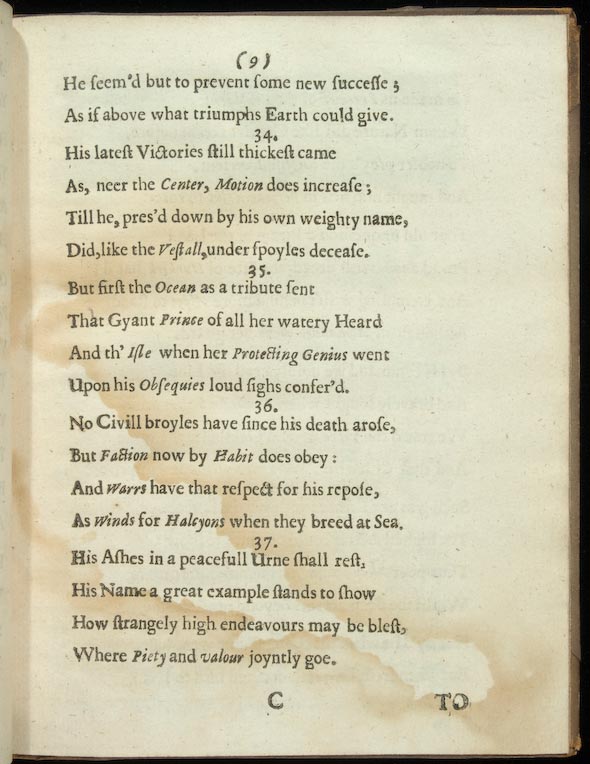 (9)
He ſeem'd but to prevent ſome new ſucceſſe ;
As if above what triumphs Earth could give.
34.
His lateſt Victories ſtill thickeſt came
As, neer the Center, Motion does increaſe ;
Till he, pres'd down by his own weighty name,
Did, like the Veſtall, under ſpoyles deceaſe.
35.
But firſt the Ocean as a tribute ſent
That Gyant Prince of all her watery Heard
And th' Iſle when her Protecting Genius went
Upon his Obſequies loud ſighs confer'd.
36.
No Civill broyles have ſince his death aroſe,
But Faction now by Habit does obey :
And Warrs have that reſpect for his repoſe,
As Winds for Halcyons when they breed at Sea.
37.
His Aſhes in a peacefull Urne ſhall reſt,
His Name a great example ſtands to ſhow
How ſtrangely high endeavours may be bleſt,
Where Piety and valour joyntly goe.
C TO